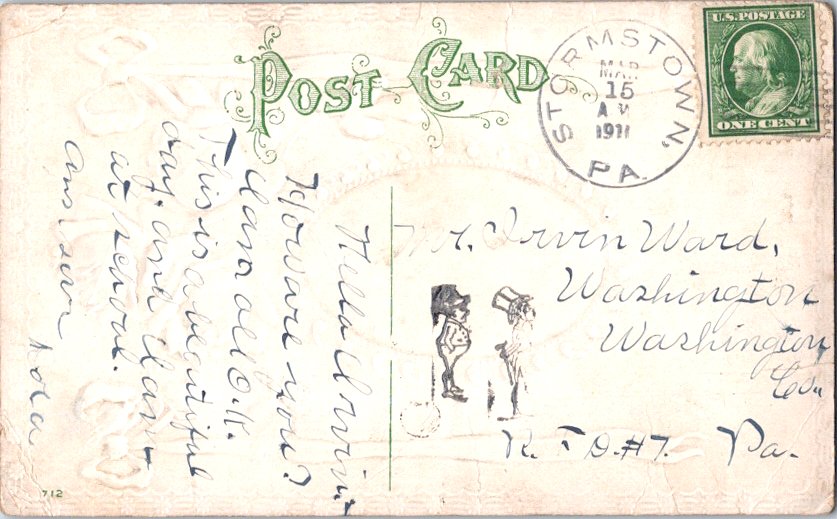 POST CARD
STORMSTOWN,
MAR
15
A M
1911
PA.
U.S. POSTAGE
ONE CENT
Hello Irvin:
How are you?
I am all O.K.
This is a beautiful
day, and I am
at school.
Ans. soon
Mr. Irvin Ward,
Washington
Washington
Co.
R. F D. #7. Pa.
712